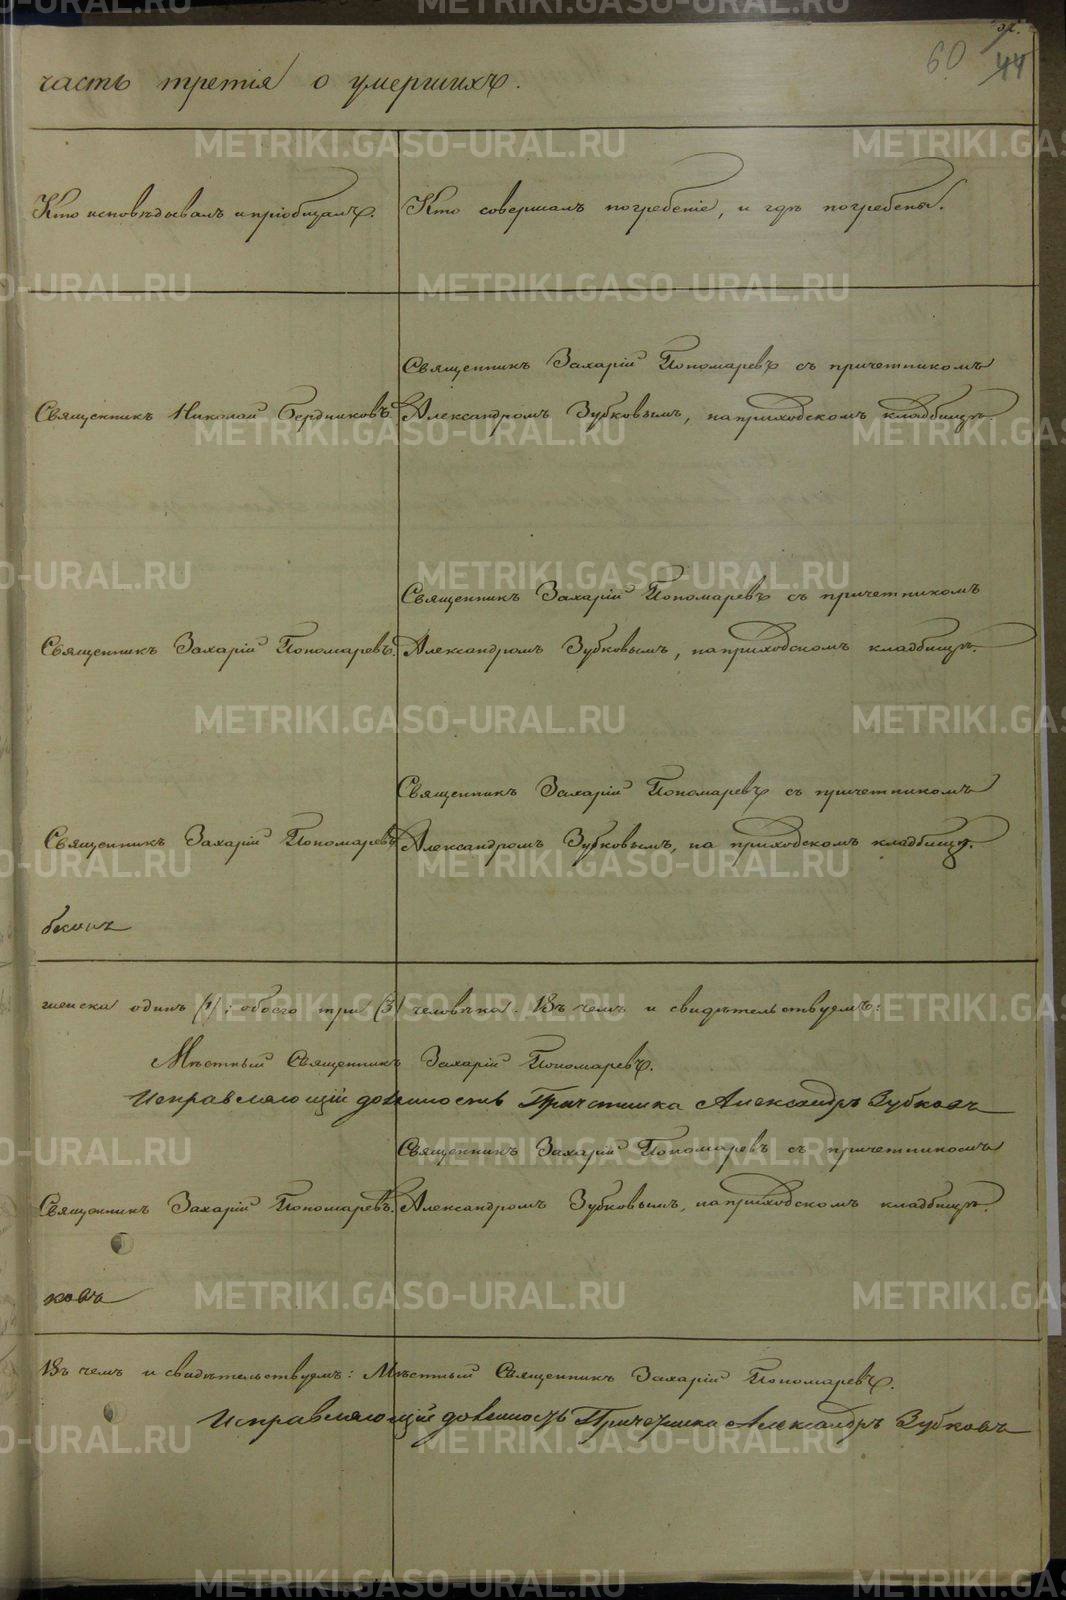 60 44
часть третія о умершихъ.
Кто исповѣдывалъ и пріобщалъ.
Кто совершалъ погребеніе, и гдѣ погребены.
Священникъ Захарій Пономаревъ съ причетникомъ
Священникъ Николай Бердниковъ. Александромъ Зубковымъ, на приходскомъ кладбищѣ.
Священникъ Захарій Пономаревъ съ причетникомъ
Священникъ Захарій Пономаревъ. Александромъ Зубковымъ, на приходскомъ кладбищѣ.
Священникъ Захарій Пономаревъ съ причетникомъ
Священникъ Захарій Пономаревъ. Александромъ Зубковымъ, на приходскомъ кладбищѣ.
женска одинъ (1); обоего три (3) человѣка. Въ чемъ и свидѣтельствуемъ:
Мѣстный Священникъ Захарій Пономаревъ.
Исправляющій должность Причетника Александръ Зубковъ
Священникъ Захарій Пономаревъ съ причетникомъ
Священникъ Захарій Пономаревъ. Александромъ Зубковымъ, на приходскомъ кладбищѣ.
ковъ
Въ чемъ и свидѣтельствуемъ: Мѣстный Священникъ Захарій Пономаревъ.
Исправляющій должность Причетника Александръ Зубковъ
METRIKI.GASO-URAL.RU